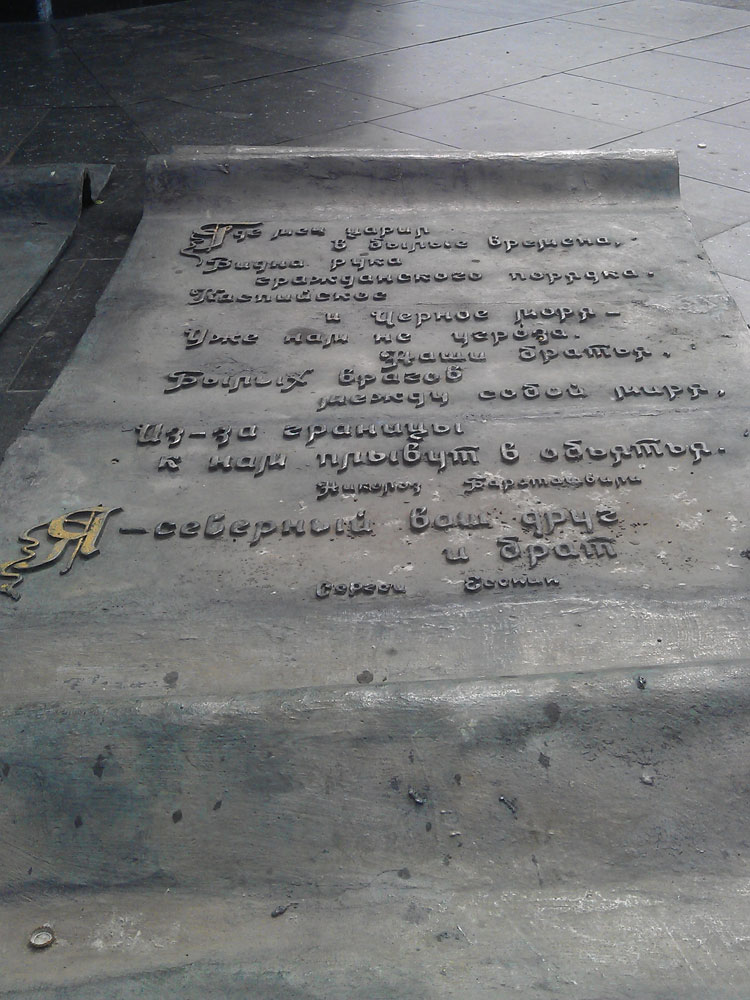 Где меч царил
в былые времена,
Видна рука
гражданского порядка.
Каспийское
и Черное моря—
Уже нам не угроза.
Наши братья,
Былых врагов
между собой миря,
Из-за границы
к нам плывут в объятья.
Николоз Бараташвили
Я—северный ваш друг
и брат
Сергей Есенин